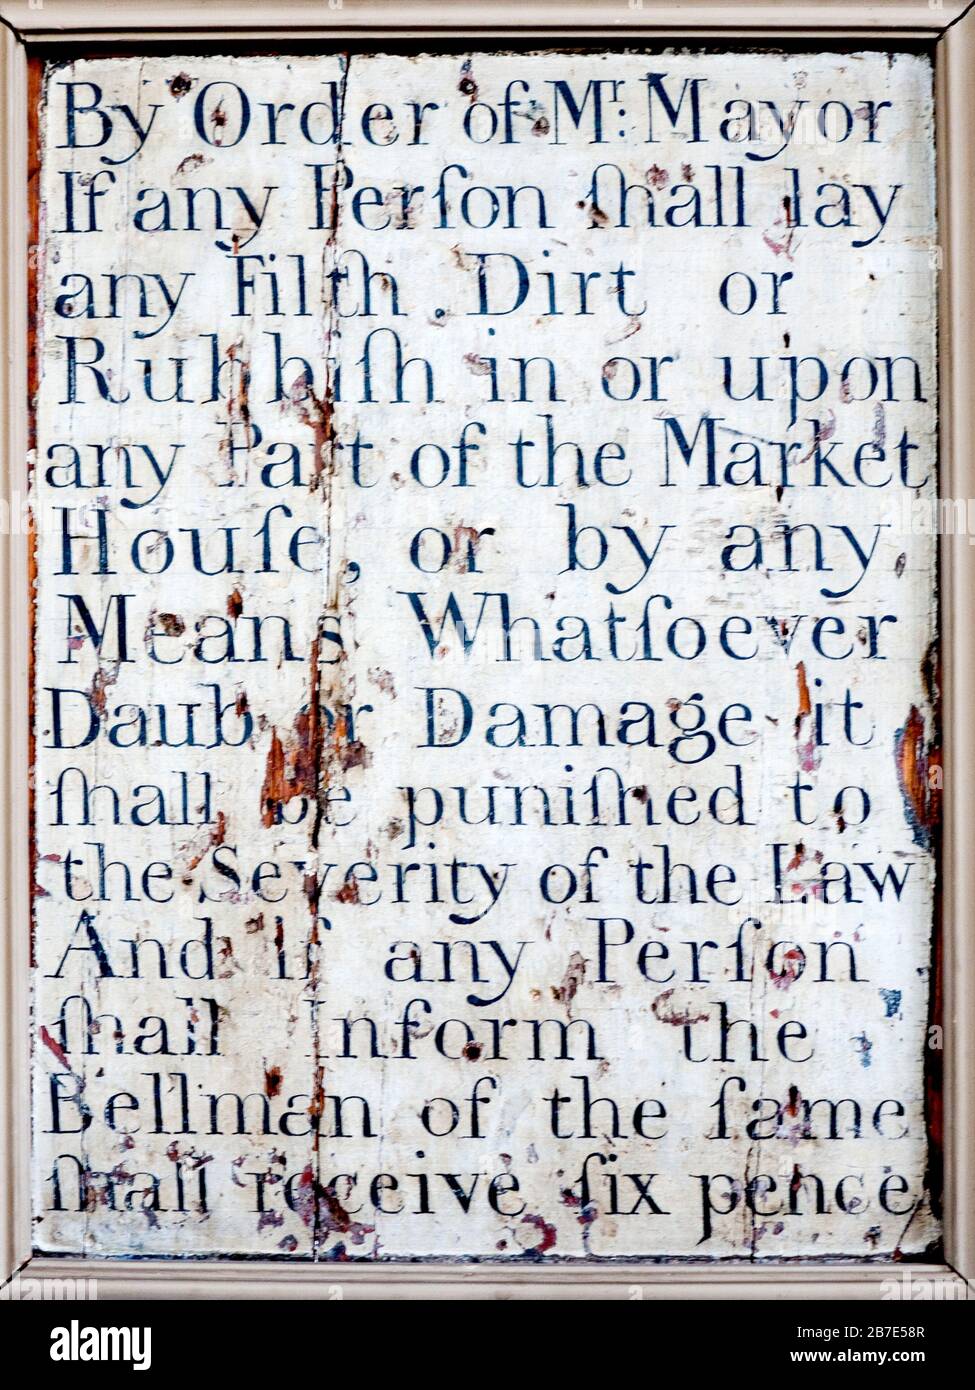 By Order of Mr: Mayor
If any Perſon ſhall lay
any Filth . Dirt or
Rubbiſh in or upon
any Part of the Market
Houſe, or by any
Means Whatſoever
Daub or Damage it
ſhall be puniſhed to
the Severity of the Law
And If any Perſon
ſhall Inform the
Bellman of the ſame
ſhall receive ſix pence
alamy
Image ID: 2B7E58R
www.alamy.com